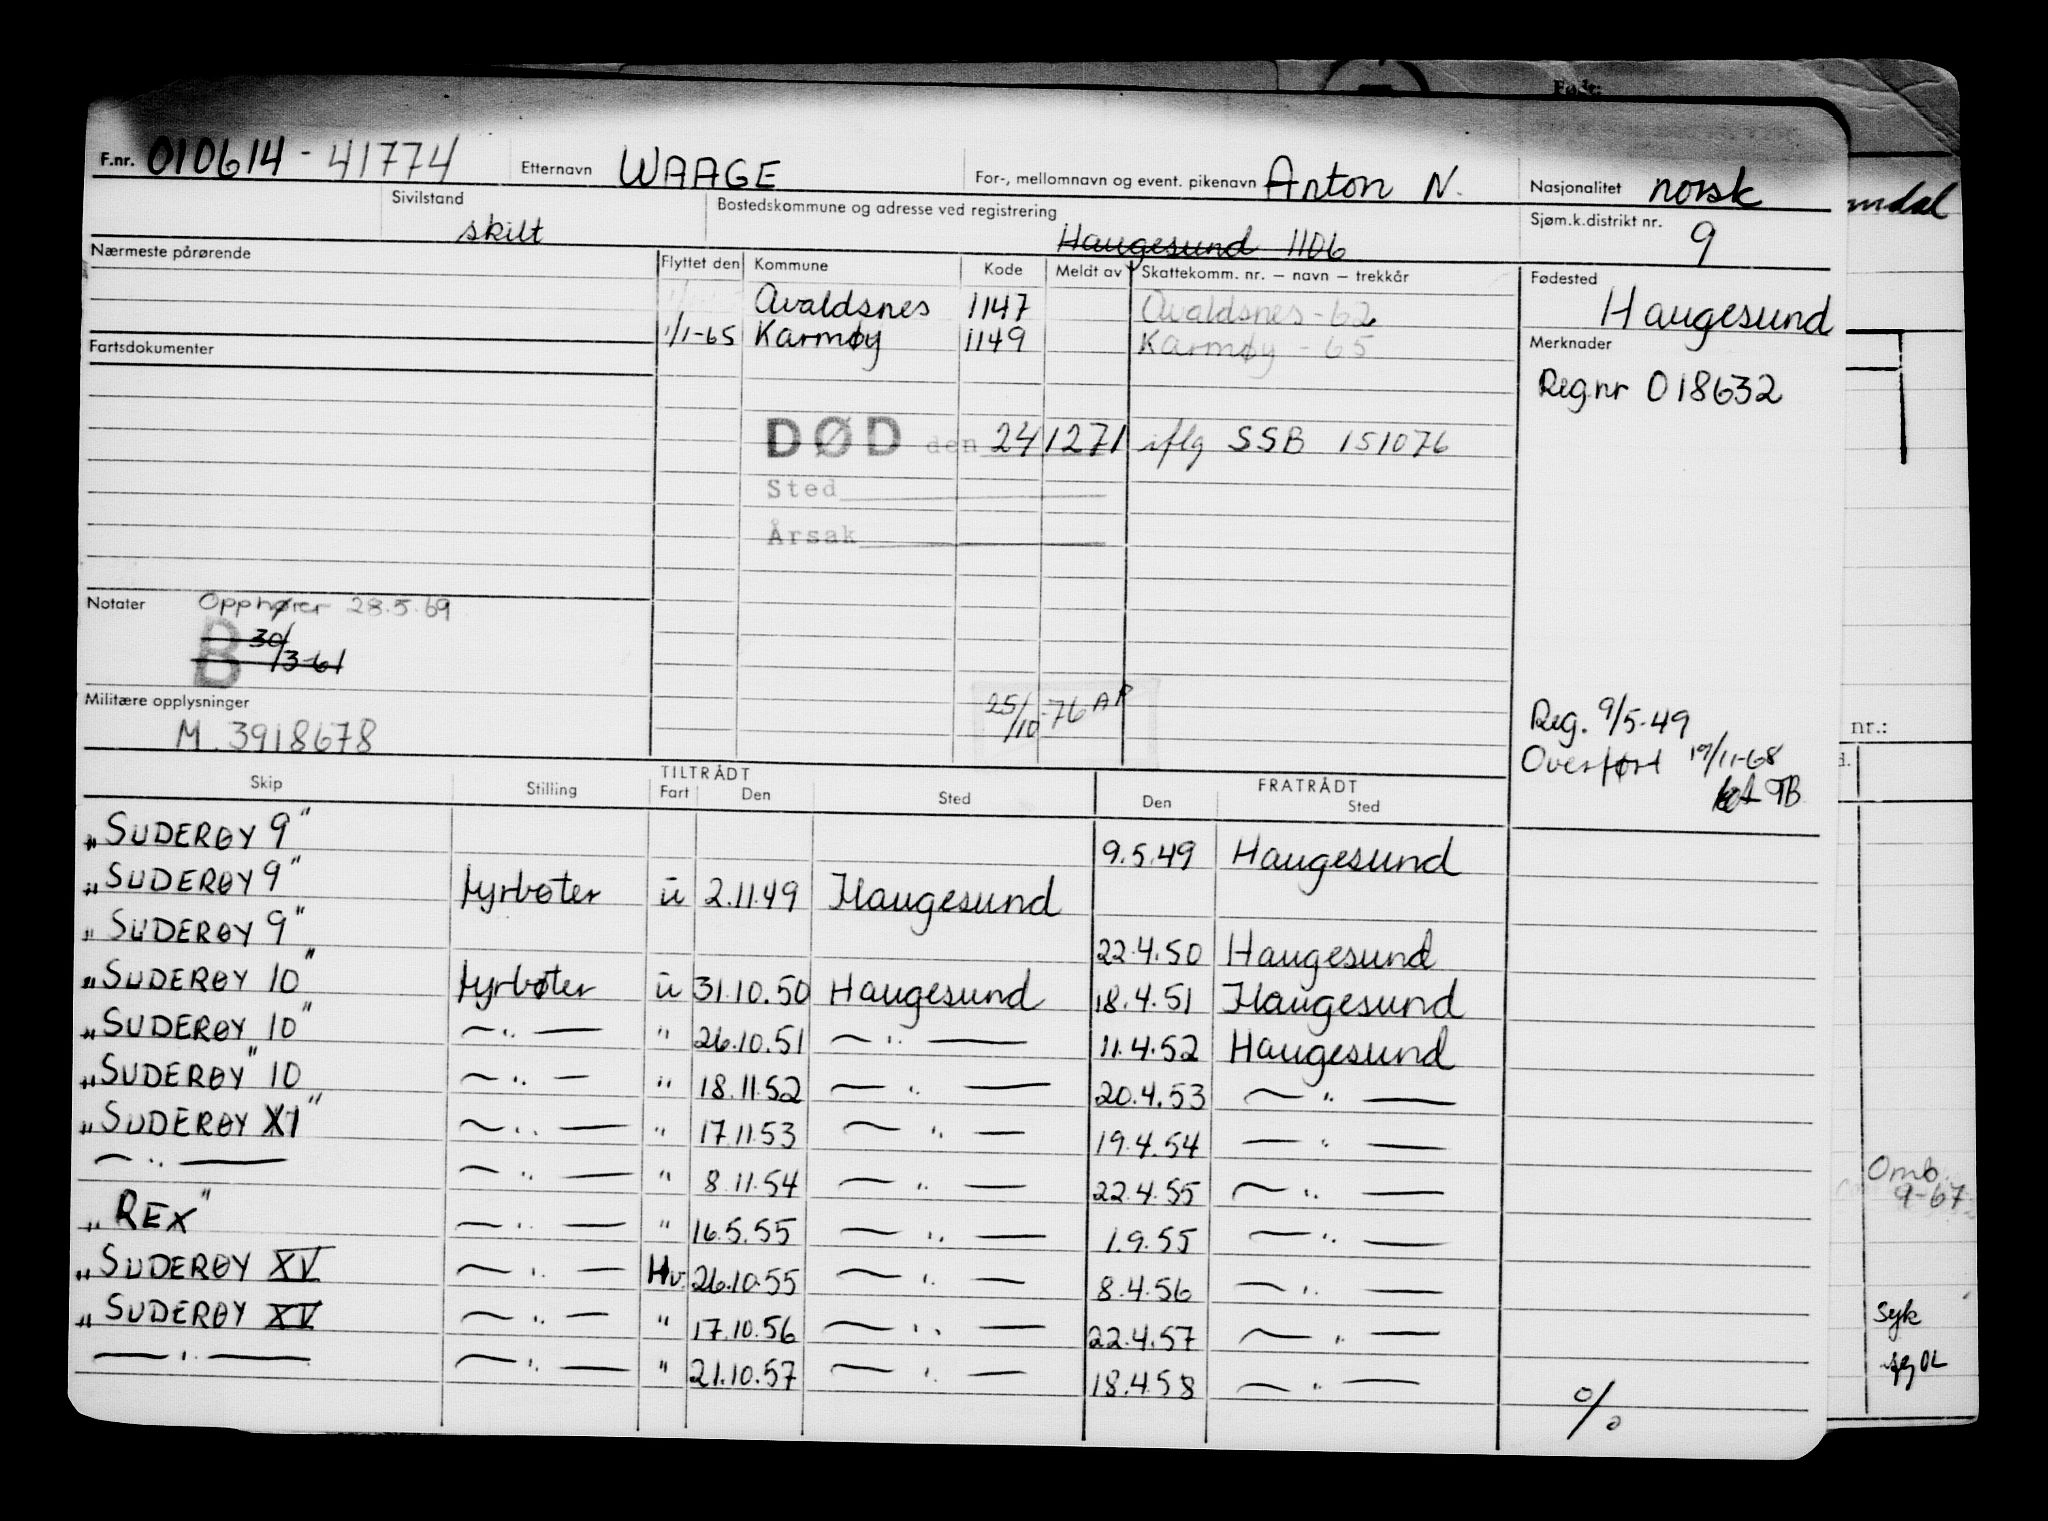 F.nr. 010614-41774 Etternavn WAAGE For-, mellomnavn og event. pikenavn Anton N. Nasjonalitet norsk
Sivilstand skilt Bostedskommune og adresse ved registrering Haugesund 1106 Sjøm.k.distrikt nr. 9
Nærmeste pårørende Flyttet den Kommune Kode Meldt av Skattekomm. nr. – navn – trekkår Fødested
Avaldsnes 1147 Avaldsnes-62 Haugesund
1/1-65 Karmøy 1149 Karmøy - 65
Fartsdokumenter Merknader
Reg.nr 018632
DØD den 241271 iflg SSB 151076
Sted
Årsak
Notater Opphører 28.5.69
B 30/3-61
Militære opplysninger
M. 3918678
25/10-76 AP
Reg. 9/5-49
Overført 19/11-68
TB
Skip Stilling TILTRÅDT Fart Den Sted FRATRÅDT Den Sted
„SUDERØY 9" 9.5.49 Haugesund
„SUDERØY 9" fyrbøter u 2.11.49 Haugesund
„SUDERØY 9" 22.4.50 Haugesund
„SUDERØY 10" fyrbøter u 31.10.50 Haugesund 18.4.51 Haugesund
„SUDERØY 10" — " — " 26.10.51 — " — 11.4.52 Haugesund
„SUDERØY" 10 — " — " 18.11.52 — " — 20.4.53 — " —
„SUDERØY XI" — " — " 17.11.53 — " — 19.4.54 — " —
— " — — " — " 8.11.54 — " — 22.4.55 — " —
„REX" — " — " 16.5.55 — " — 1.9.55 — " —
„SUDERØY XV — " — Hv. 26.10.55 — " — 8.4.56 — " —
„SUDERØY XV — " — " 17.10.56 — " — 22.4.57 — " —
— " — — " — " 21.10.57 — " — 18.4.58 — " —
%
Født:
mdal
nr.:
d.
Omb.
9-67
Syk